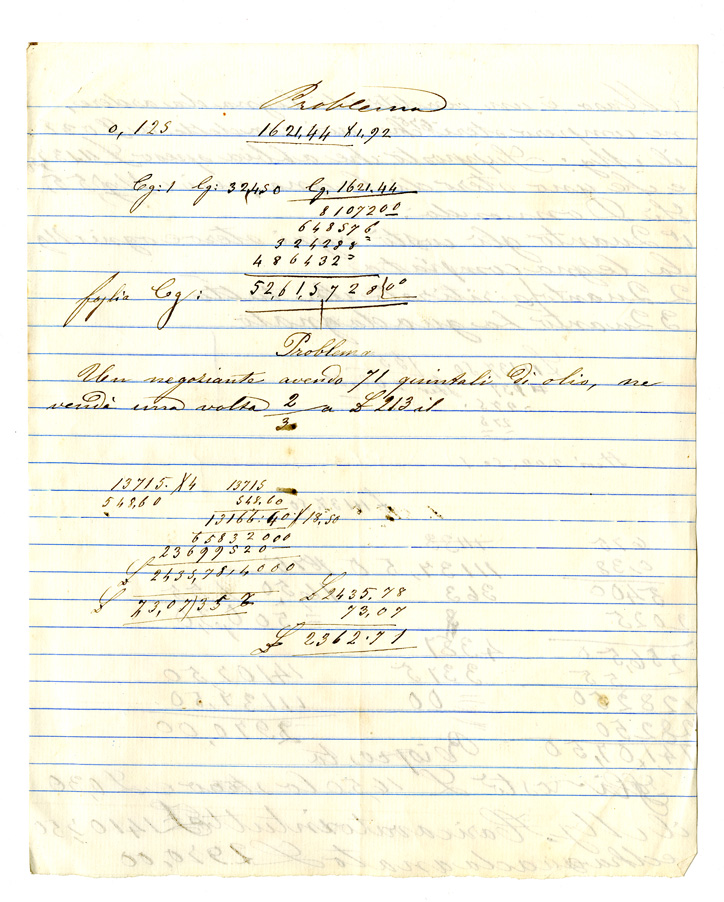 Problema
0,125 1621.44 X 1,92
Cg: 1 Cg: 32450 Cg. 1621.44
8107200
648576
324288=
486432=
foglia Cg: 52,61,5728(00
Problema
Un negoziante avendo 71 quintali di olio, ne
vendà una volta 2/3 a £ 213 il
13715. X4 13715
548,60 548,60
13166.40 X 18,50
65832000
23699520
£ 2435,78,4000
£ 73,07/35 £ 2435.78
73,07
£ 2362.71